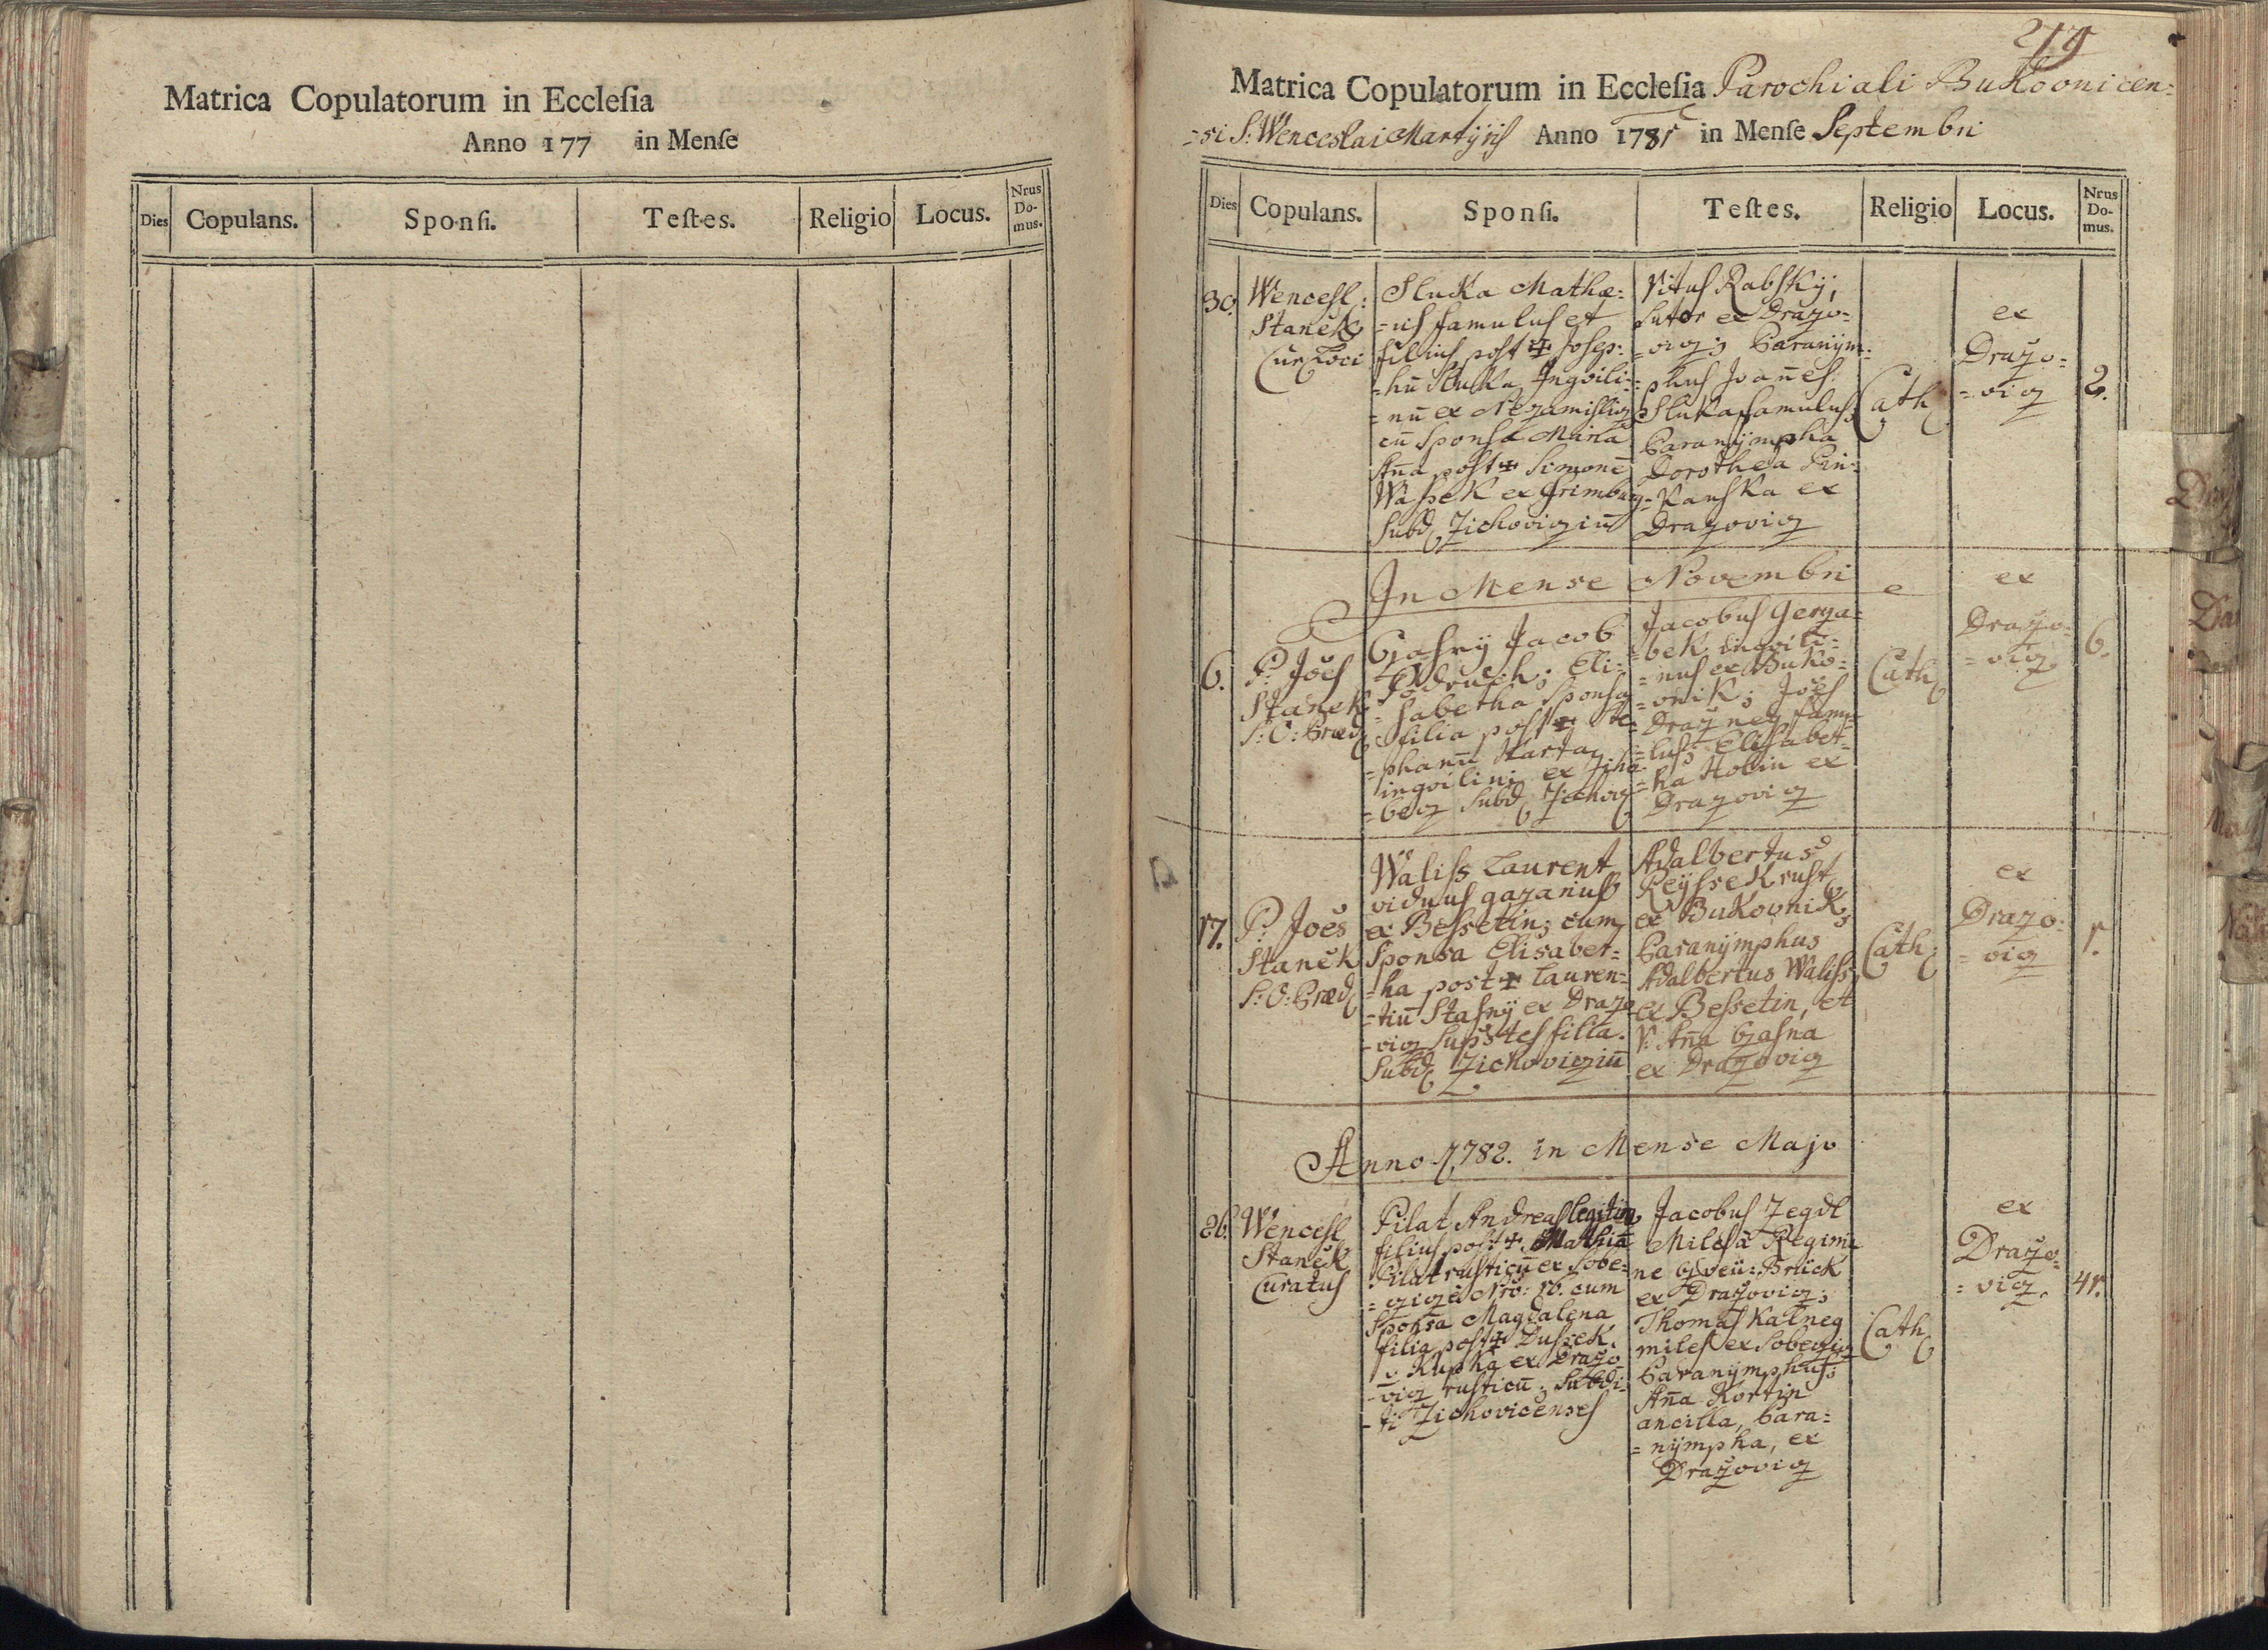 Matrica Copulatorum in Ecclesia
Anno 177 in Mense
Dies
Copulans.
Sponsi.
Testes.
Religio
Locus.
Nrus
Do-
mus.
219
Matrica Copulatorum in Ecclesia Parochiali Bukovnicen:
=si S: Wenceslai Martyris Anno 1781 in Mense Septembri
Dies
Copulans.
Sponsi.
Testes.
Religio
Locus.
Nrus
Do-
mus.
30.
Wencesl:
Staněk
Cur Loci
Sluka Mathæ:
=us famulus et
filius post ✝ Josep:
=hū Sluka Inqvili:
=nū ex Nezamislicz
cū Sponsa Maria
An̄a post ✝ Simonē
Wassek ex Grimburg
Subd Zichovicziū
Vitus Rabský,
sutor ex Drazo=
=vicz; Paranym:
=phus Joan̄es
Sluka famulus;
Paranýmpha
Dorothea Pin:
=kauska ex
Drazovicz
Cath
ex
Drazo=
=vicz
2.
In Mense Novembri
6.
P: Joēs
Staněk
S: O: Præd
Czasný Jacob
Podruch; Eli:
=sabetha Sponsa
filia post ✝ Ste=
=phanū Karta
inqvilini ex Ziho
=becz Subd Zichov
Jacobus Gerza=
=bek inqvili=
=nus ex Buko:
=vnik; Joēs
Drazney famu=
=lus Elisabet=
=ha Hobin ex
Drazovicz
Cath
ex
Drazo=
=vicz
6.
17.
P: Joēs
Staněk
S: O: Præd
Waliss Laurent
viduus gazarius
ex Bessetin; cum
Sponsa Elisabet=
=ha post ✝ Lauren=
=tiū Stasný ex Drazo
=vicz Sup̄stes filia.
Subd Zichovicziū
Adalbertus
Reýssek rust
ex Bukovnik;
Paranýmphus
Adalbertus Waliss
ex Bessetin, et
V: An̄a Czasna
ex Drazovicz
Cath:
ex
Drazo:
=vicz
1.
Anno 1782. in Mense Majo
26.
Wencesl
Staněk
Curatus
Pilat Andreas legitim
filius post ✝ Mathiā
Pilat rusticū ex Sobe=
=czicz è Nrō: 16. cum
Sponsa Magdalena
filia post ✝ Dussek
v Kupka ex Drazo
=vicz rusticū; Subdi:
=ti Zichovicenses
Jacobus Zegdl
Miles à Regimi
ne Czweü: Brück
ex Drazovicz;
Thomas Kalneg
miles ex Sobeczicz
Paranýmphus;
An̄a Kortin
ancilla, Para=
=nýmpha, ex
Drazovicz
Cath
ex
Drazo=
=vicz.
41.